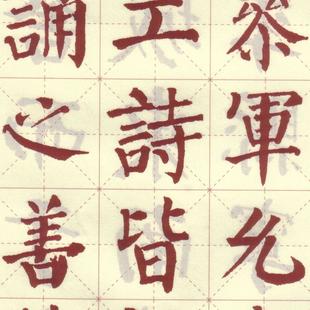 叅軍允
工詩皆
誦之善